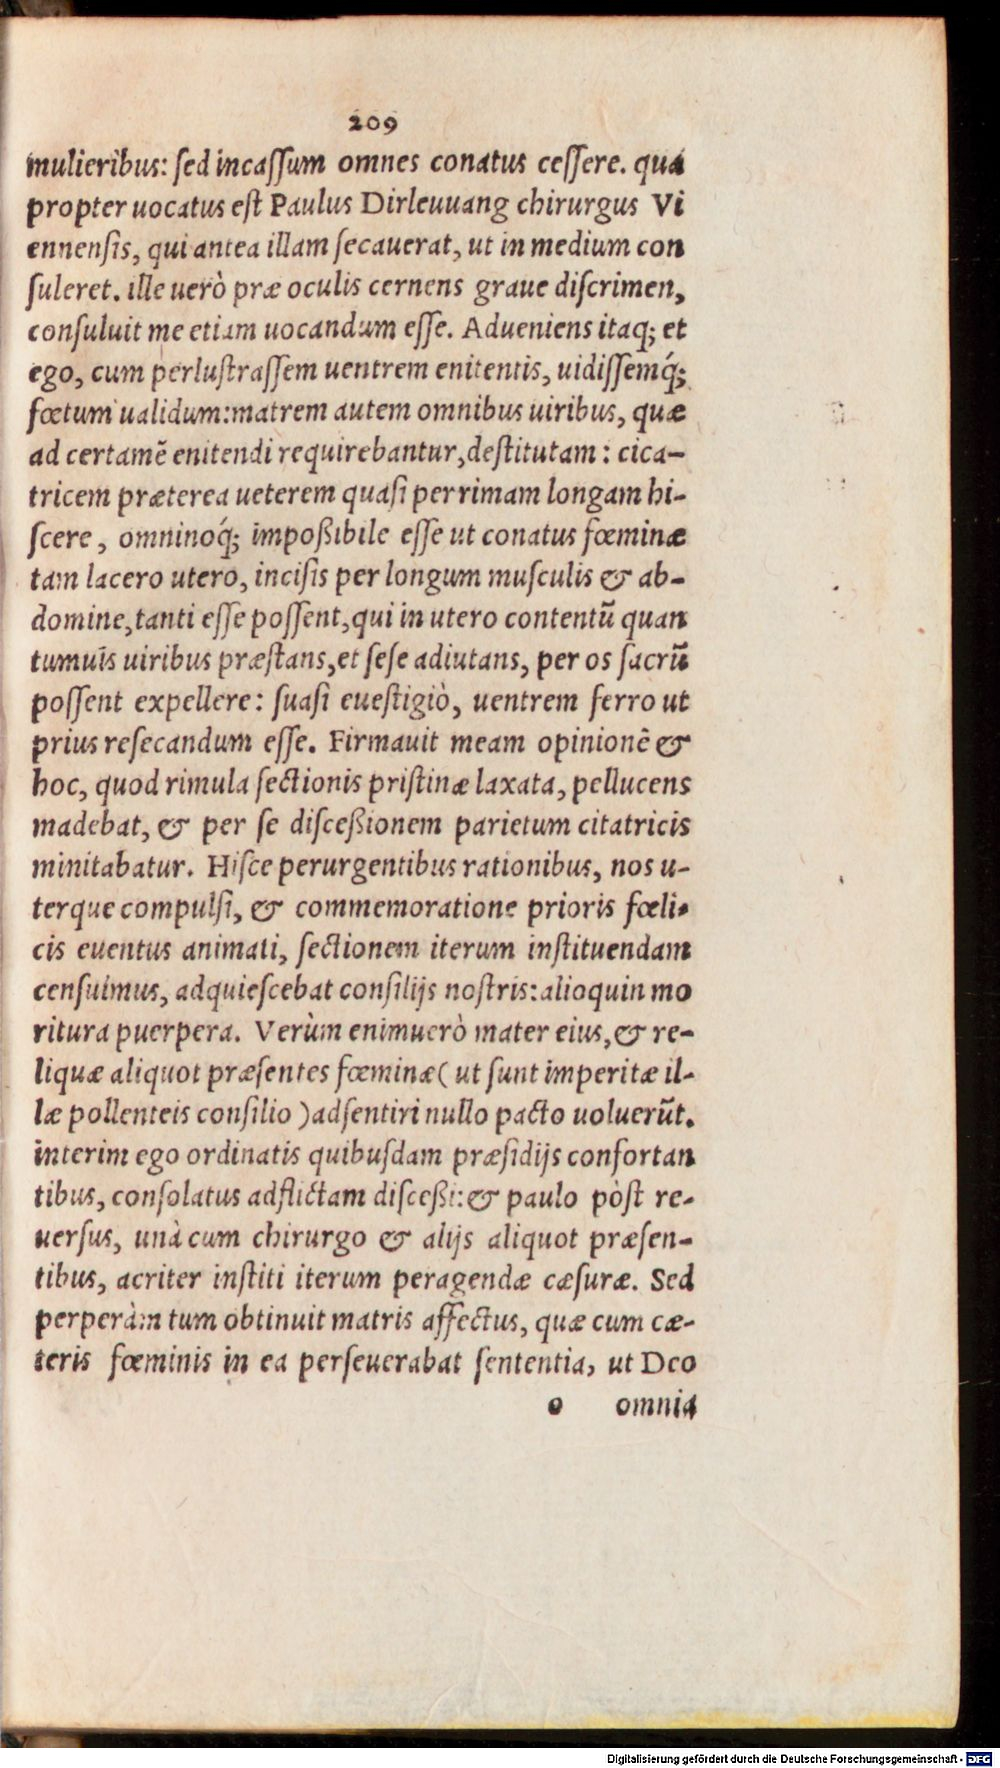 209
mulieribus: ſed incaſſum omnes conatus ceſſere. qua
propter uocatus eſt Paulus Dirleuuang chirurgus Vi
ennenſis, qui antea illam ſecauerat, ut in medium con
ſuleret. ille uerò præ oculis cernens graue diſcrimen,
conſuluit me etiam uocandum eſſe. Adueniens itaq; et
ego, cum perluſtraſſem uentrem enitentis, uidiſſemq́;
fœtum ualidum: matrem autem omnibus uiribus, quæ
ad certamẽ enitendi requirebantur, deſtitutam: cica-
tricem præterea ueterem quaſi per rimam longam hi-
ſcere, omninoq́; impoßibile eſſe ut conatus fœminæ
tam lacero utero, inciſis per longum muſculis & ab-
domine, tanti eſſe poſſent, qui in utero contentũ quan
tumuis uiribus præſtans, et ſeſe adiutans, per os ſacrũ
poſſent expellere: ſuaſi eueſtigiò, uentrem ferro ut
prius reſecandum eſſe. Firmauit meam opinionẽ &
hoc, quod rimula ſectionis priſtinæ laxata, pellucens
madebat, & per ſe diſceßionem parietum citatricis
minitabatur. Hiſce perurgentibus rationibus, nos u-
terque compulſi, & commemoratione prioris fœli-
cis euentus animati, ſectionem iterum inſtituendam
cenſuimus, adquieſcebat conſilijs noſtris: alioquin mo
ritura puerpera. Verùm enimuerò mater eius, & re-
liquæ aliquot præſentes fœminæ (ut ſunt imperitæ il-
læ pollenteis conſilio) adſentiri nullo pacto uoluerũt.
interim ego ordinatis quibuſdam præſidijs confortan
tibus, conſolatus adflictam diſceßi: & paulo pòſt re-
uerſus, unà cum chirurgo & alijs aliquot præſen-
tibus, acriter inſtiti iterum peragendæ cæſuræ. Sed
perperàm tum obtinuit matris affectus, quæ cum cæ-
teris fœminis in ea perſeuerabat ſententia, ut Deo
o omnia
Digitalisierung gefördert durch die Deutsche Forschungsgemeinschaft - DFG